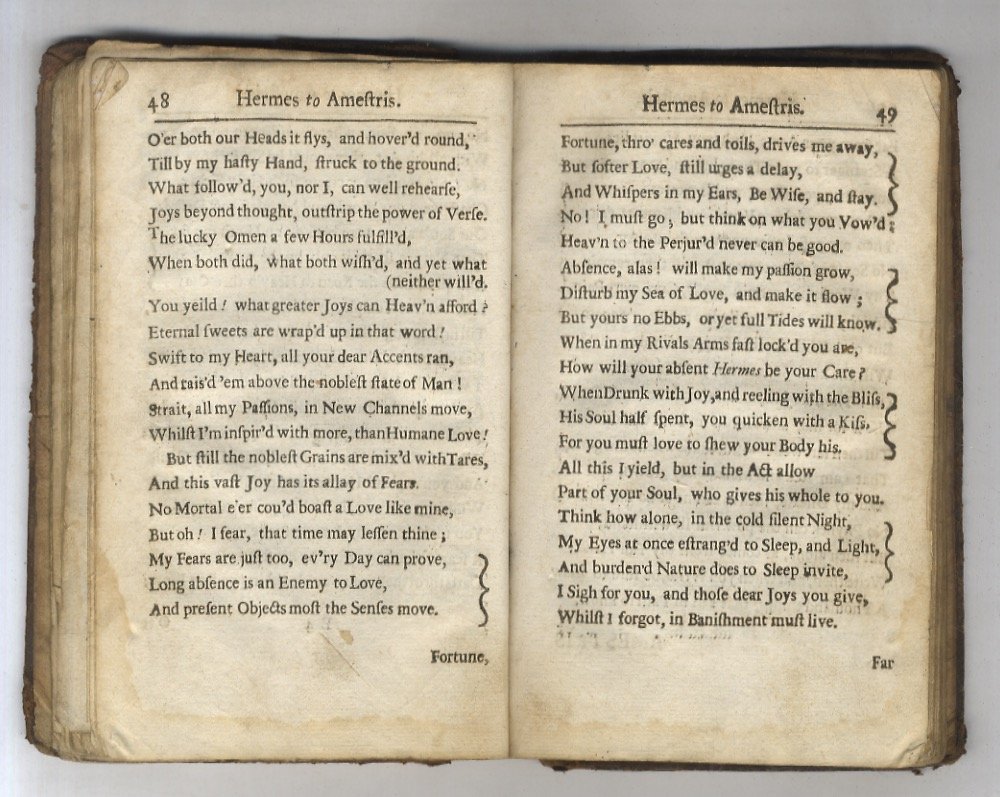 48 Hermes to Ameſtris.
O'er both our Heads it flys, and hover'd round,
Till by my haſty Hand, ſtruck to the ground.
What follow'd, you, nor I, can well rehearſe,
Joys beyond thought, outſtrip the power of Verſe.
The lucky Omen a few Hours fulfill'd,
When both did, what both wiſh'd, and yet what
(neither will'd.
You yeild! what greater Joys can Heav'n afford?
Eternal ſweets are wrap'd up in that word!
Swift to my Heart, all your dear Accents ran,
And rais'd 'em above the nobleſt ſtate of Man!
Strait, all my Paſſions, in New Channels move,
Whilſt I'm inſpir'd with more, than Humane Love!
But ſtill the nobleſt Grains are mix'd with Tares,
And this vaſt Joy has its allay of Fears.
No Mortal e'er cou'd boaſt a Love like mine,
But oh! I fear, that time may leſſen thine;
My Fears are juſt too, ev'ry Day can prove,
Long abſence is an Enemy to Love,
And preſent Objects moſt the Senſes move.
Fortune,
Hermes to Ameſtris. 49
Fortune, thro' cares and toils, drives me away,
But ſofter Love, ſtill urges a delay,
And Whiſpers in my Ears, Be Wiſe, and ſtay.
No! I muſt go, but think on what you Vow'd;
Heav'n to the Perjur'd never can be good.
Abſence, alas! will make my paſſion grow,
Diſturb my Sea of Love, and make it flow;
But yours no Ebbs, or yet full Tides will know.
When in my Rivals Arms faſt lock'd you are,
How will your abſent Hermes be your Care?
When Drunk with Joy, and reeling with the Bliſs,
His Soul half ſpent, you quicken with a Kiſs,
For you muſt love to ſhew your Body his.
All this I yield, but in the Act allow
Part of your Soul, who gives his whole to you.
Think how alone, in the cold ſilent Night,
My Eyes at once eſtrang'd to Sleep, and Light,
And burden'd Nature does to Sleep invite,
I Sigh for you, and thoſe dear Joys you give,
Whilſt I forgot, in Baniſhment muſt live.
Far